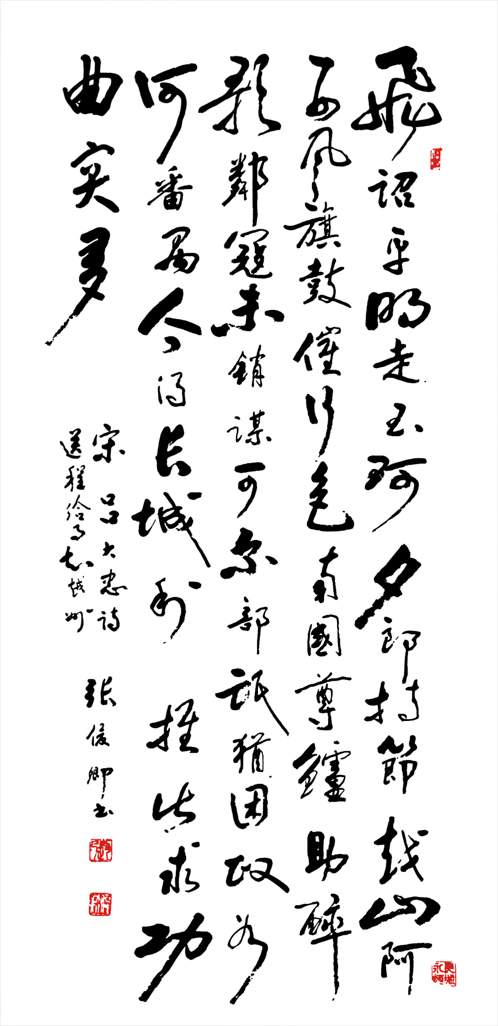 飛詔平明走玉珂夕郎持節越山阿
西風旗鼓催行色南國尊鱸助醉
歌鄰寇未銷謀可部氓猶困政
何番禺人得長城利推此求功
曲突多
宋呂大忠詩
送程給事知越州
張俊卿书